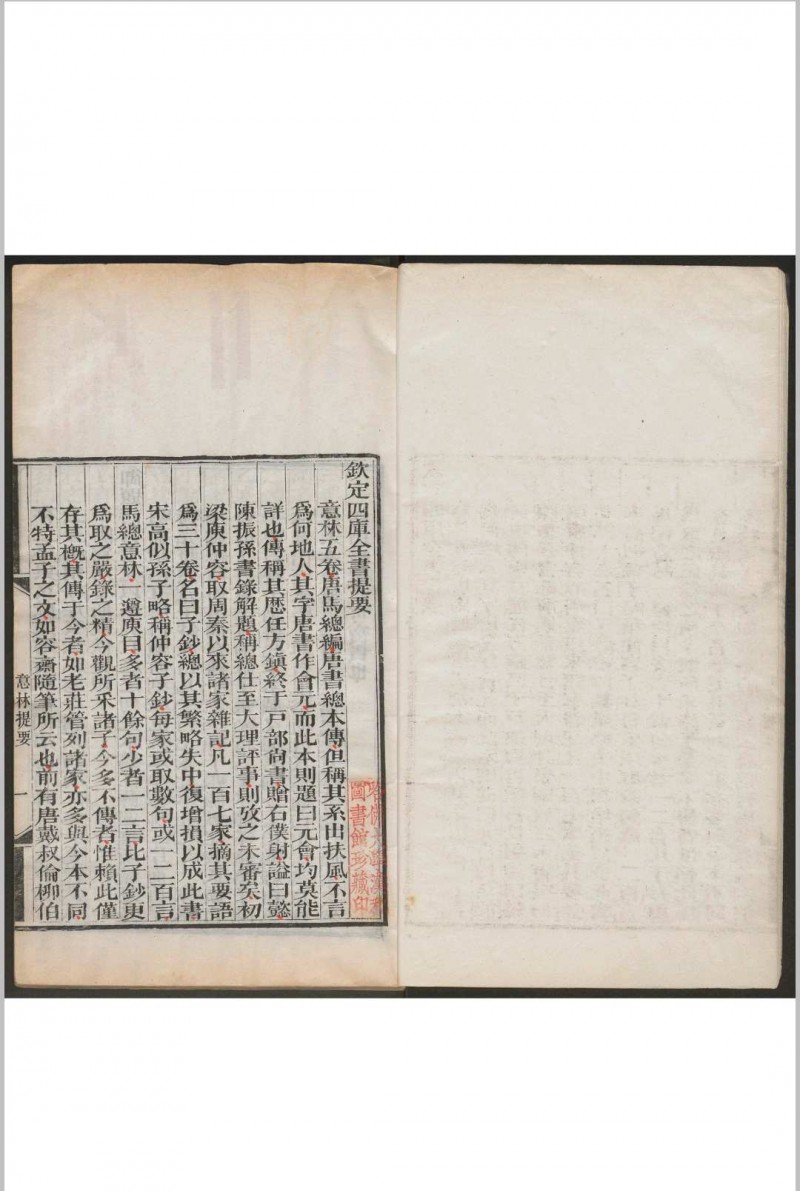 欽定四庫全書提要
意林五卷唐馬總編唐書總本傳但稱其系出扶風不言
爲何地人其字唐書作會元而此本則題曰元會均莫能
詳也傳稱其歷任方鎮終于戸部尙書贈右僕射謚曰懿
陳振孫書錄解題稱總仕至大理評事則攷之未審矣初
梁庾仲容取周秦以來諸家雜記凡一百七家摘其要語
爲三十卷名曰子鈔總以其繁略失中復增損以成此書
宋高似孫子略稱仲容子鈔每家或取數句或一二百言
馬總意林一遵庾目多者十餘句少者一二言比子鈔更
爲取之嚴錄之精今觀所采諸子今多不傳者惟賴此僅
存其槪其傳于今者如老莊管列諸家亦多與今本不同
不特孟子之文如容齋隨筆所云也前有唐戴叔倫柳伯
意林提要
一
圖書館珍藏印